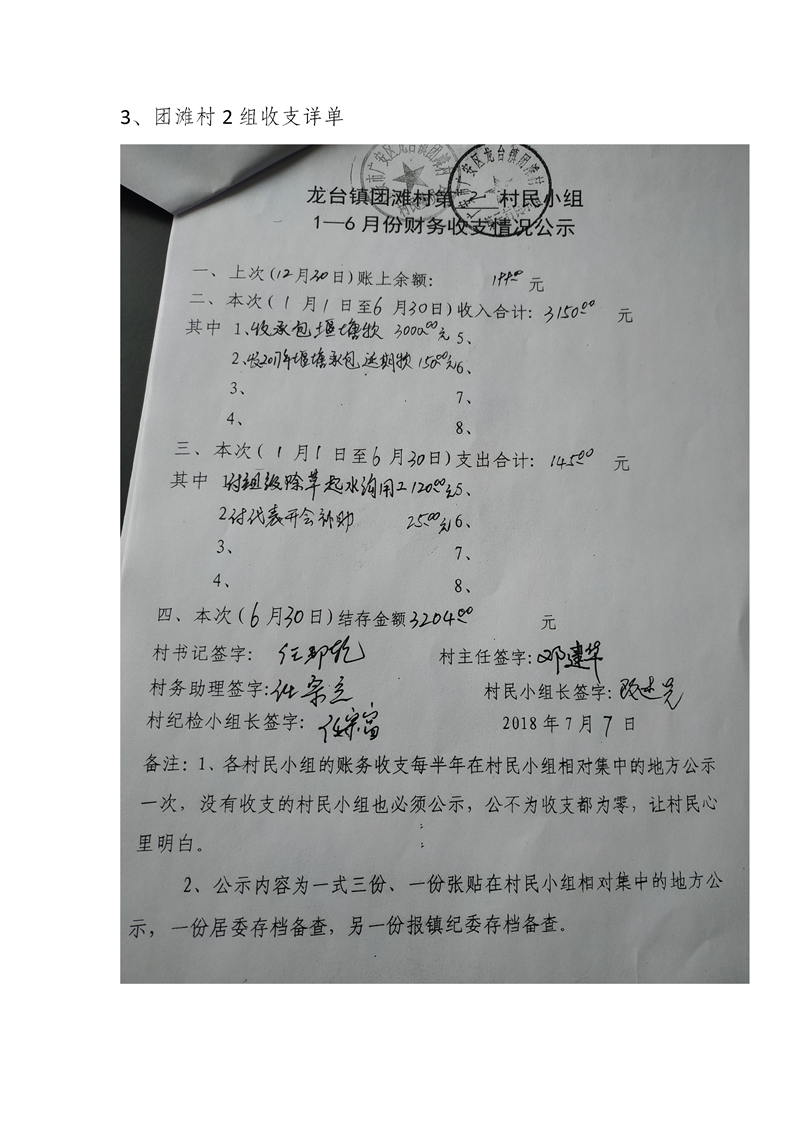 3、团滩村 2 组收支详单
龙台镇团滩村第二村民小组
1—6月份财务收支情况公示
一、上次(12月30日)账上余额: 199.00 元
二、本次(1月1日至6月30日)收入合计: 3150.00 元
其中 1、收承包堰塘款 3000.00元 5、
2、收2017年堰塘承包延期款 150.00元 6、
3、 7、
4、 8、
三、本次(1月1日至6月30日)支出合计: 145.00 元
其中 1付组级除草起水沟用工 120.00元 5、
2付代表开会补助 25.00元 6、
3、 7、
4、 8、
四、本次(6月30日)结存金额 3204.00 元
村书记签字: 村主任签字: 邓建华
村务助理签字: 任宗立 村民小组长签字:
村纪检小组长签字: 任宗富 2018年7月7日
备注: 1、各村民小组的账务收支每半年在村民小组相对集中的地方公示
一次，没有收支的村民小组也必须公示，公不为收支都为零，让村民心
里明白。
2、公示内容为一式三份、一份张贴在村民小组相对集中的地方公
示，一份居委存档备查，另一份报镇纪委存档备查。